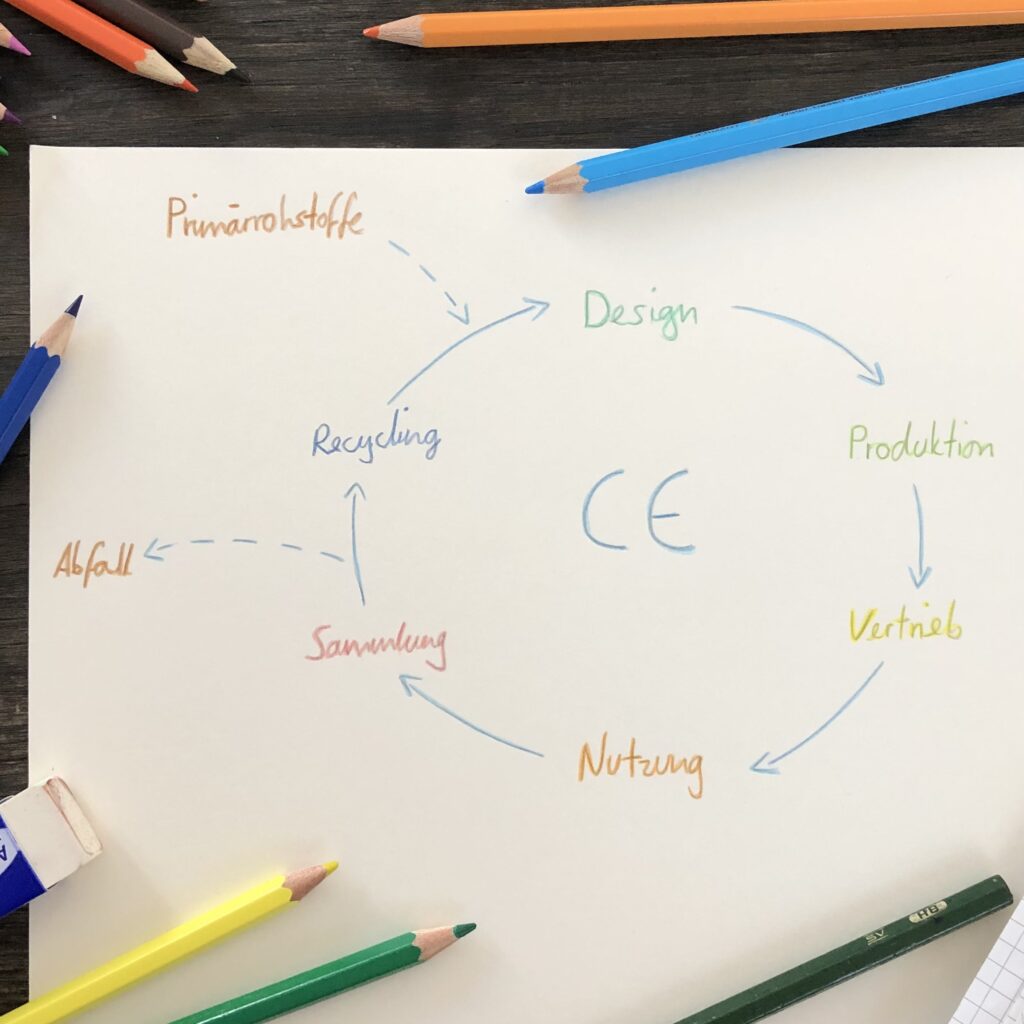 Primärrohstoffe
Design
Recycling
Produktion
CE
Abfall
Sammlung
Vertrieb
Nutzung
HB